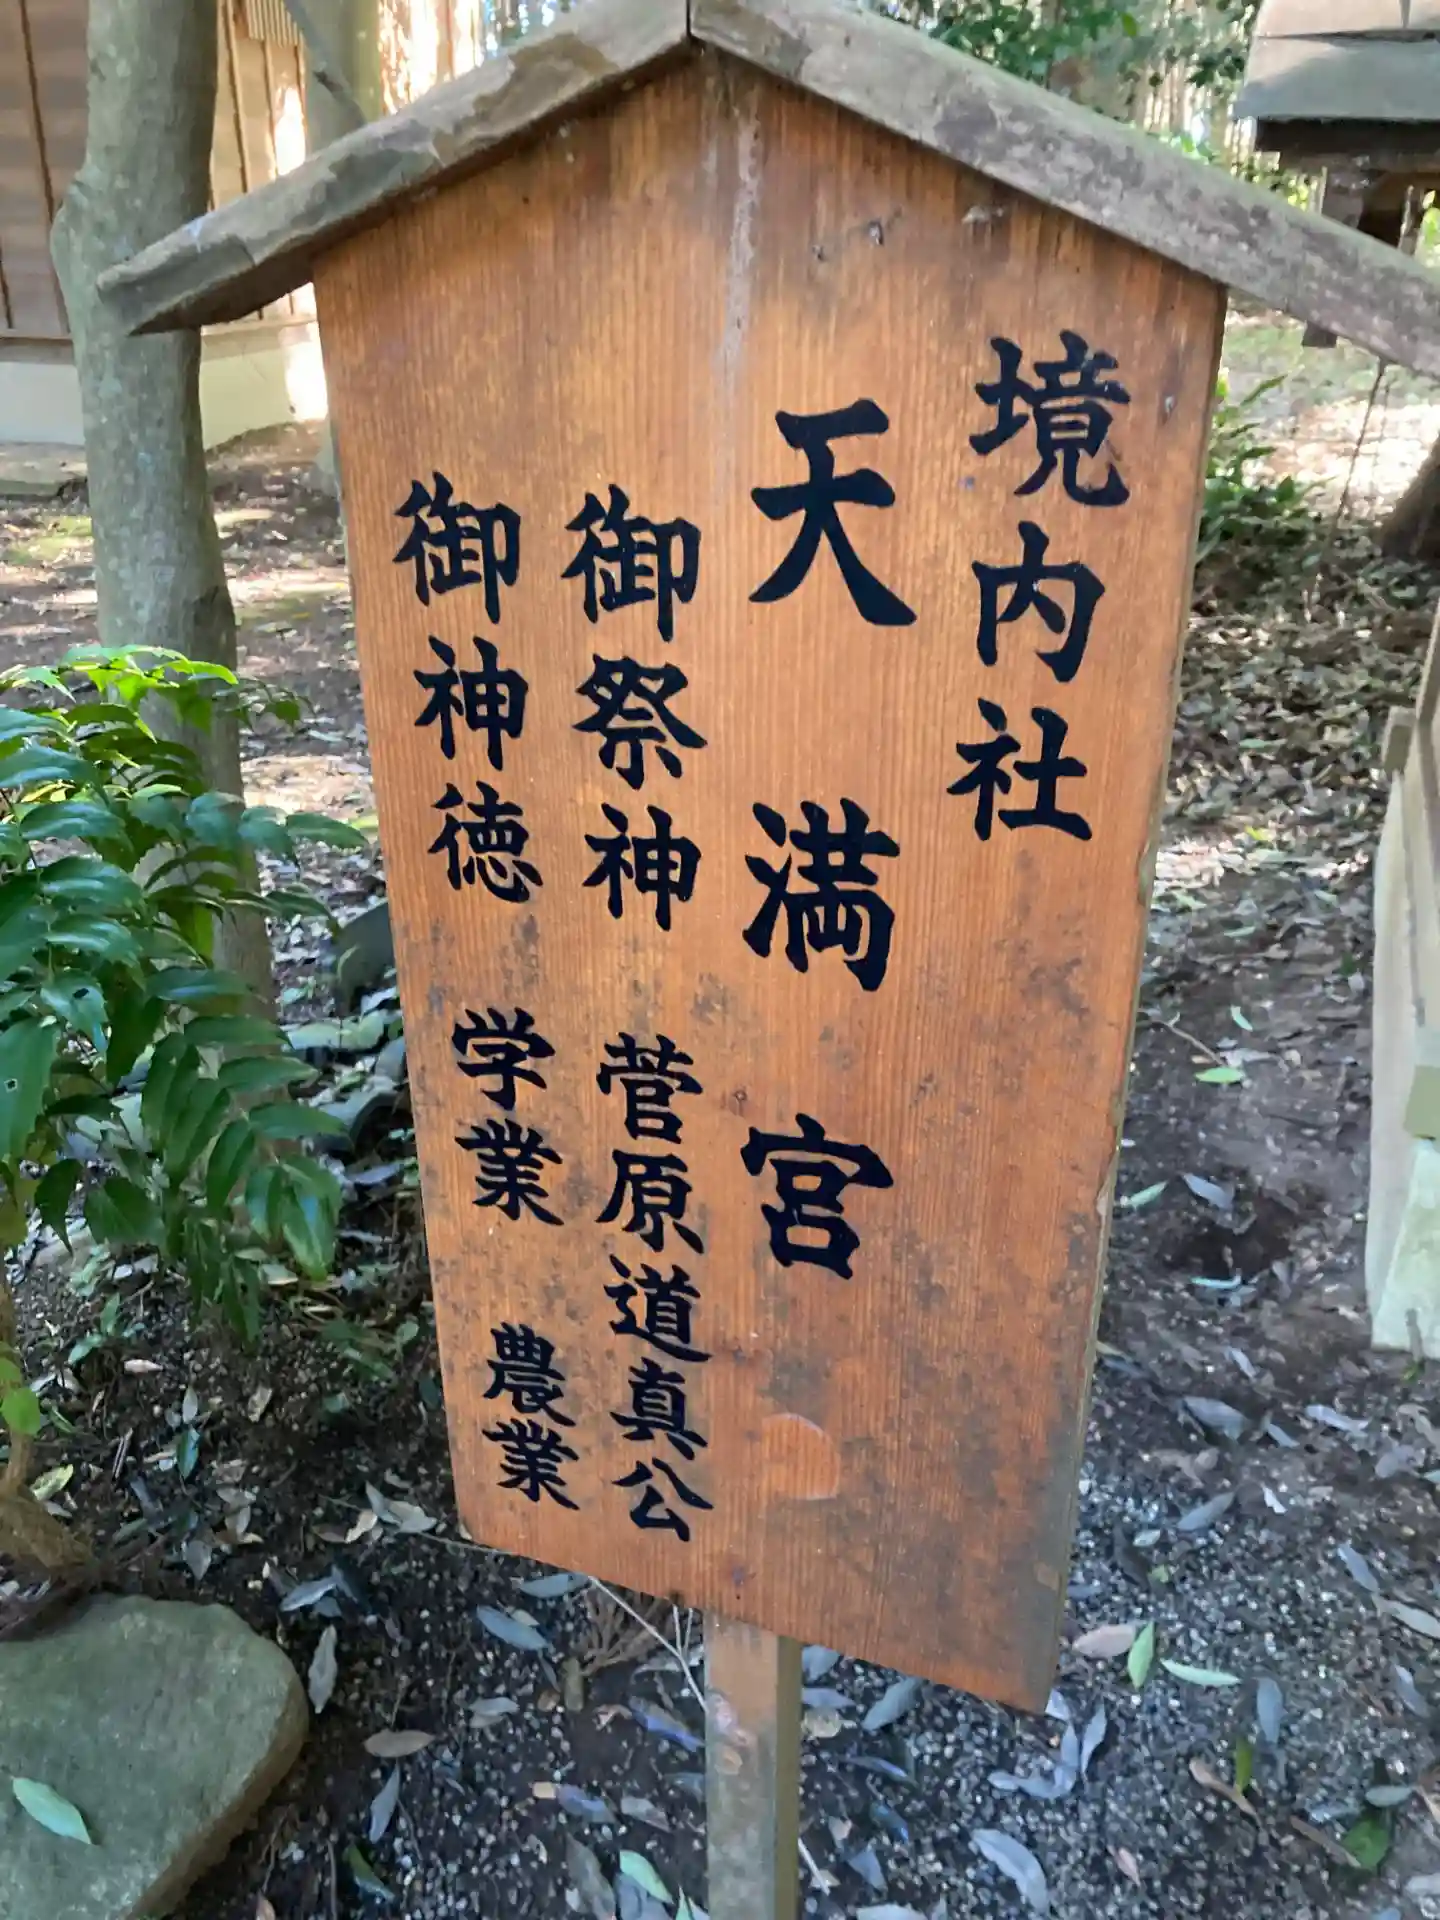 境内社
天満宮
御祭神　菅原道真公
御神徳　学業　農業